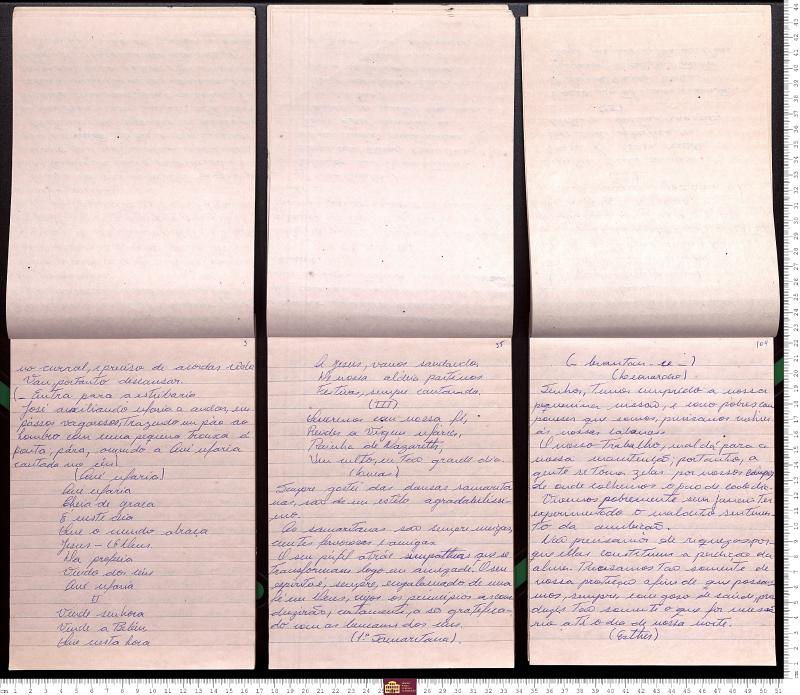 3
no curral, e preciso de acordar cedo
Vou portanto descansar.
(_ Entra para a estribaria
José auxiliando Maria a andar, em
passos vagarosos, trazendo um pao ao
hombro com uma pequena trouxa á
ponta, pára, ouvindo a Avé Maria
cantada no céu)
(Avé Maria)
Avé Maria
Cheia de graça
E neste dia
Que o mundo abraça
Jesus - Deus
Na profecia
Vindo dos céus
Avé Maria
II
Vinde senhora
Vinde a Belém
Que nesta hora
35
A Jesus, vamos saudando,
Da nossa aldeia partimos
Festivas, sempre cantando.
(III)
Queremos com nossa fé,
Render a Virgem Maria,
Rainha de Nazareth,
Um culto, em tão grande dia.
Sempre gostei das danças samarita
nas, são de um estilo agradabilissi-
mo.
As samaritanas são sempre meigas,
gentis favorosas e amigas.
O seu perfil atrái simpathias que se
transformam logo em amizade. O seu
espírito é, sempre, engalanado de uma
fé em Deus, cujos os principios as con
duzirão, certamente, a ser gratifica-
do com as bençams dos céus.
(1ª Samaritana).
104
(_ levantam-se_)
Senhor, temos cumprido a nossa
pequenina missão, e como pobres cam
poneses que somos, precisamos
ás nossas cabanas.
O nosso trabalho, mal dá para a
nossa manutenção, portanto, a
gente se torna zelar por nossos campos
de onde colhemos o pão de cada dia.
Vivemos pobremente sem jamais ter
experimentado o maldito sentimen-
to da ambição.
Não precisamos de riquezas por-
que ellas constituem a perdição da
alma. Precisamos tão somente de
vossa proteção afim de que possa-
mos, sempre com goso de saúde, pro
duzir tão somente o que for necessá
rio até o dia de nossa morte.
(Esther)